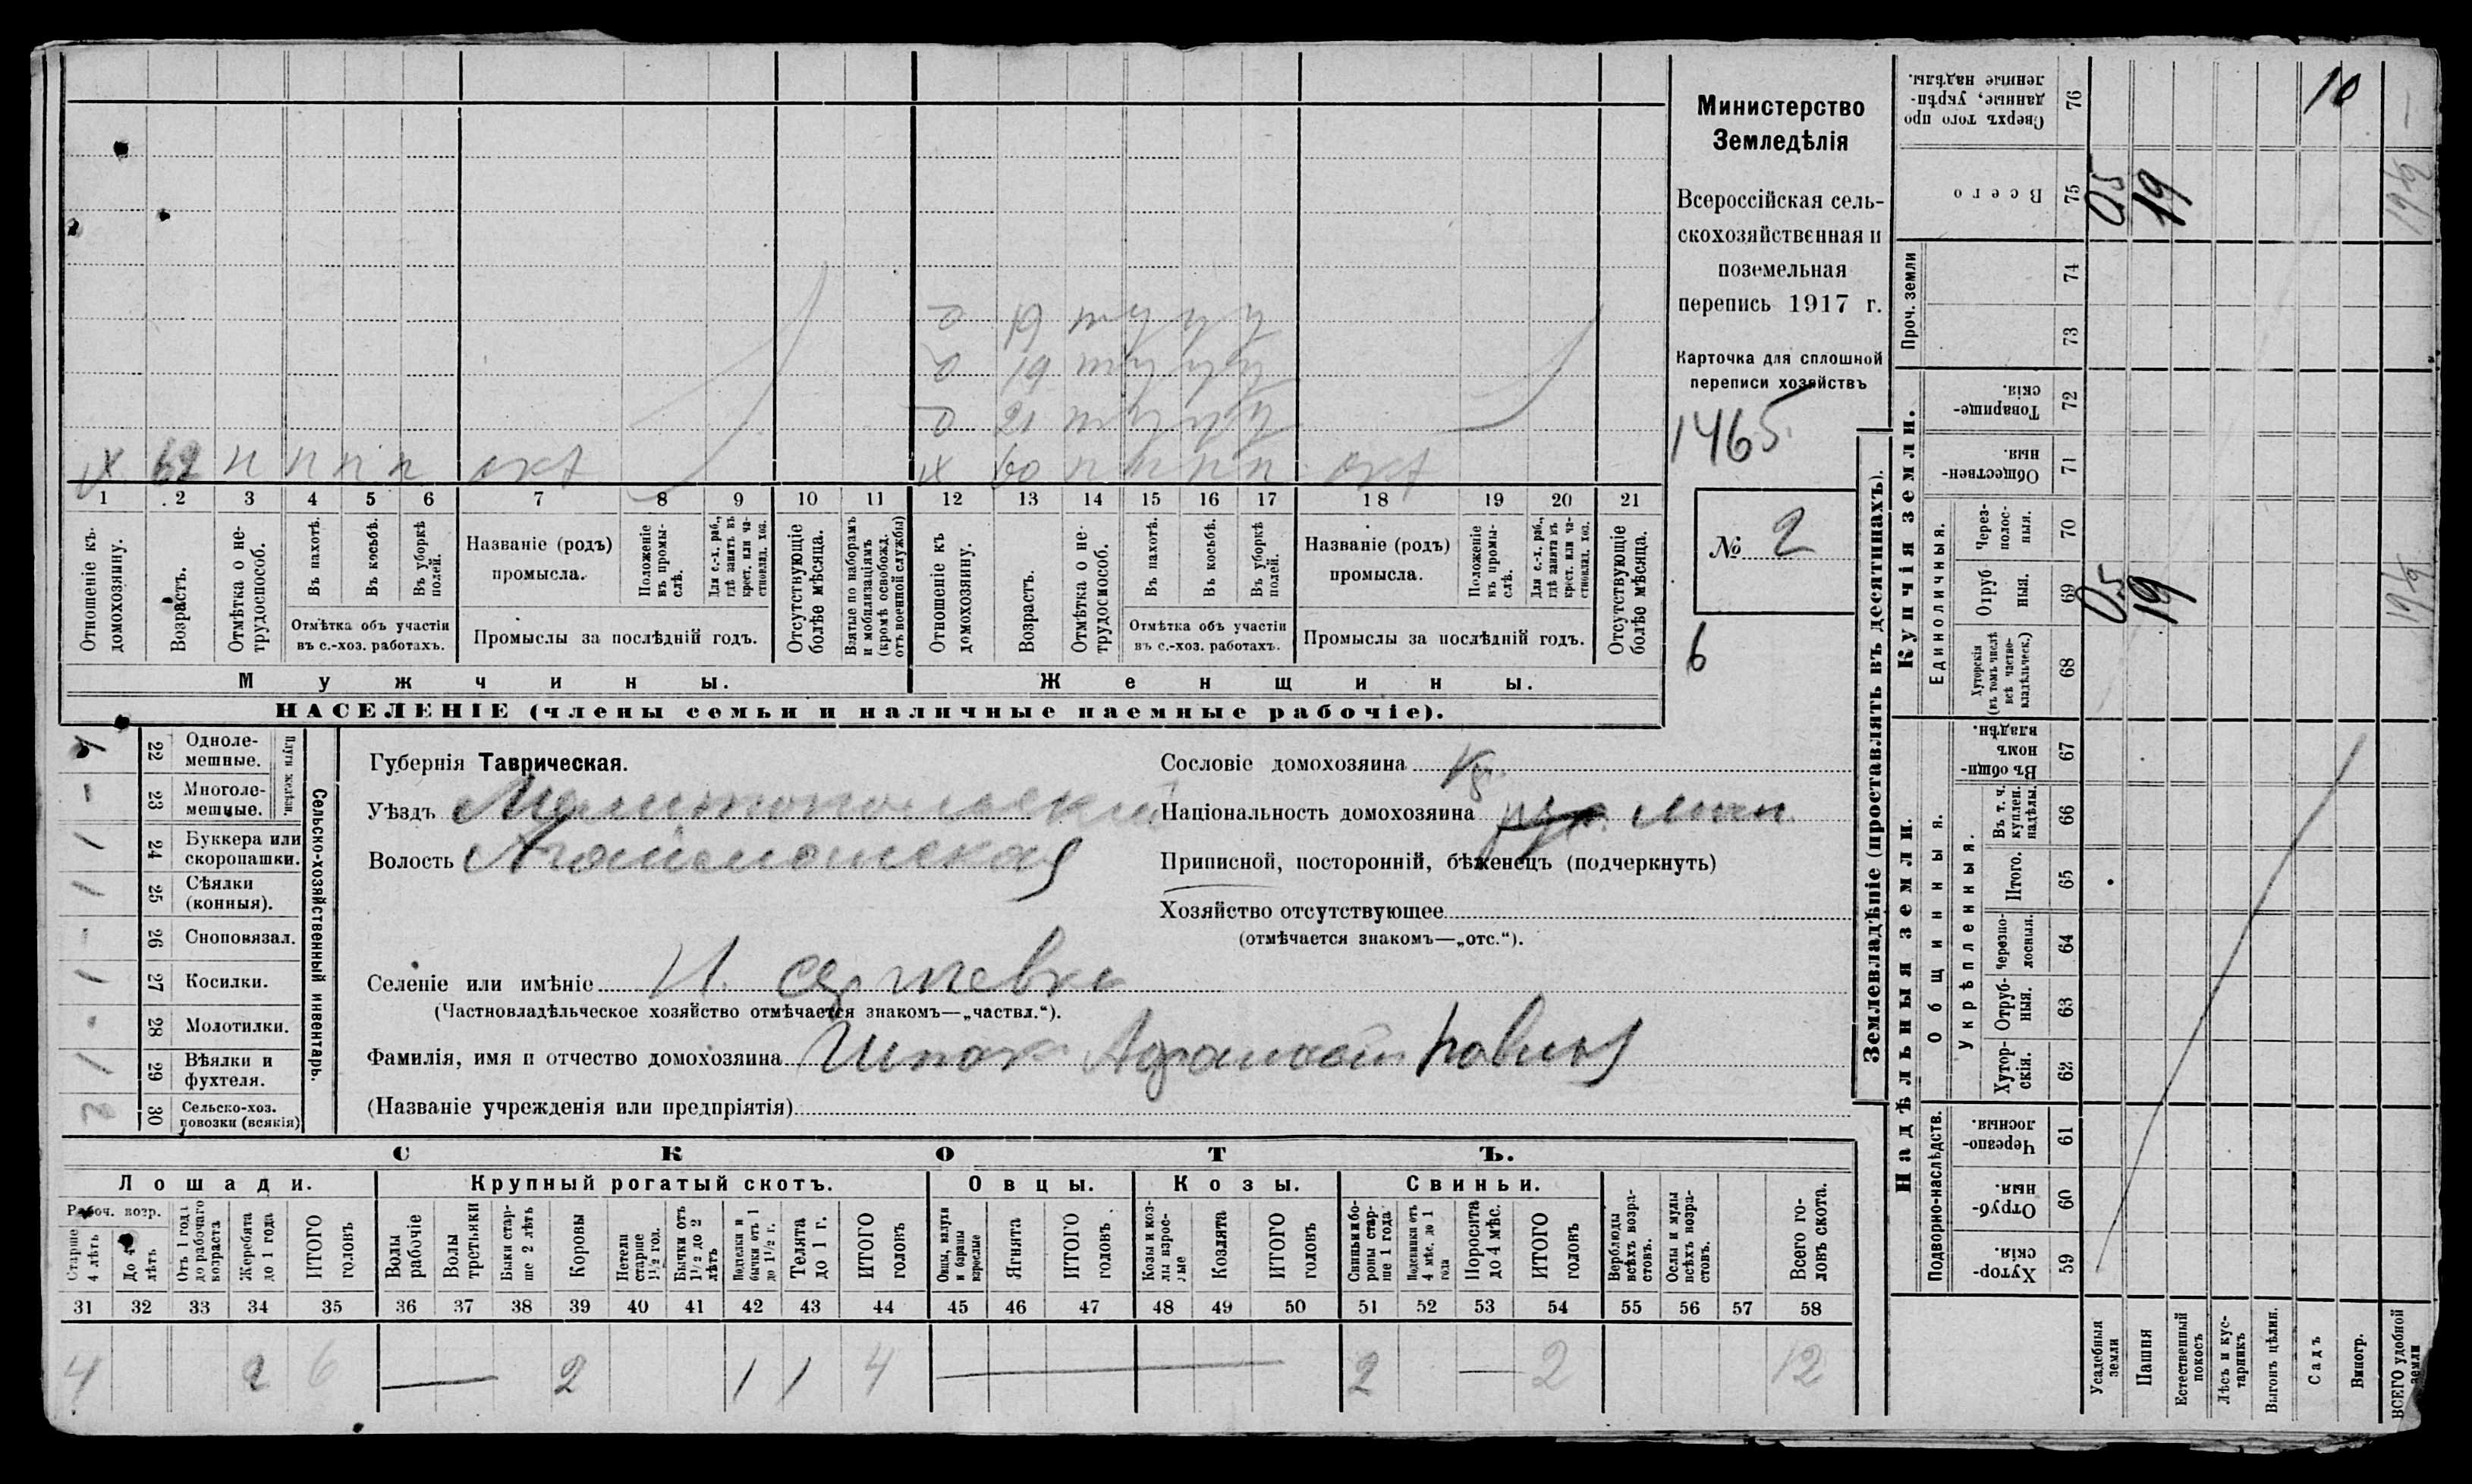 Министерство
Земледѣлія
Всероссійская сель-
скохозяйственная и
поземельная
перепись 1917 г.
Карточка для сплошной
переписи хозяйствъ
1465
№ 2
6
19
19
21
х 62 н н н н окт
х 60 н н н н окт
1 2 3 4 5 6 7 8 9 10 11 12 13 14 15 16 17 18 19 20 21
Отношеніе къ домохозяину.
Возрастъ.
Отмѣтка о не-трудоспособ.
Въ пахотѣ.
Въ косьбѣ.
Въ уборкѣ полей.
Отмѣтка объ участіи въ с.-хоз. работахъ.
Названіе (родъ) промысла.
Положеніе въ промы-слѣ.
Для с.-х. раб., гдѣ занятъ въ крест. или ча-стновлад. хоз.
Промыслы за послѣдній годъ.
Отсутствующіе болѣе мѣсяца.
Взятые по наборамъ и мобилизаціямъ (кромѣ освобожд. отъ военной службы)
Отношеніе къ домохозяину.
Возрастъ.
Отмѣтка о не-трудоспособ.
Въ пахотѣ.
Въ косьбѣ.
Въ уборкѣ полей.
Отмѣтка объ участіи въ с.-хоз. работахъ.
Названіе (родъ) промысла.
Положеніе въ промы-слѣ.
Для с.-х. раб., гдѣ занята въ крест. или ча-стновлад. хоз.
Промыслы за послѣдній годъ.
Отсутствующіе болѣе мѣсяца.
Мужчины.
Женщины.
НАСЕЛЕНІЕ (члены семьи и наличные наемные рабочіе).
Сельско-хозяйственный инвентарь.
Плуги желѣзн.
22 Одноле-мешные.
- 23 Многоле-мешные.
1 24 Буккера или скоропашки.
1 25 Сѣялки (конныя).
- 26 Сноповязал.
1 27 Косилки.
- 28 Молотилки.
1 29 Вѣялки и фухтеля.
30 Сельско-хоз. повозки (всякія)
Губернія Таврическая.
Уѣздъ Мелитопольскій
Волость
Сословіе домохозяина Кр.
Національность домохозяина
Приписной, посторонній, бѣженецъ (подчеркнуть)
Хозяйство отсутствующее
(отмѣчается знакомъ—„отс.“).
Селеніе или имѣніе
(Частновладѣльческое хозяйство отмѣчается знакомъ—„частвл.“).
Фамилія, имя и отчество домохозяина
(Названіе учрежденія или предпріятія)
СКОТЪ.
Лошади.
Крупный рогатый скотъ.
Овцы.
Козы.
Свиньи.
Рабоч. возр.
Старше 4 лѣтъ
До 4 лѣтъ
Отъ 1 года до рабочаго возраста
Жеребята до 1 года
ИТОГО головъ
Волы рабочіе
Волы третьяки
Быки стар-ше 2 лѣтъ
Коровы
Нетели старше 1½ год.
Бычки отъ 1½ до 2 лѣтъ
Подтелки и бычки отъ 1 до 1½ г.
Телята до 1 г.
ИТОГО головъ
Овцы, валухи и бараны взрослые
Ягнята
ИТОГО головъ
Козы и коз-лы взрос-лые
Козлята
ИТОГО головъ
Свиньи и бо-ровы стар-ше 1 года
Подсвинки отъ 4 мѣс. до 1 года
Поросята до 4 мѣс.
ИТОГО головъ
Верблюды всѣхъ возра-стовъ.
Ослы и мулы всѣхъ возра-стовъ.
Всего го-ловъ скота.
31 32 33 34 35 36 37 38 39 40 41 42 43 44 45 46 47 48 49 50 51 52 53 54 55 56 57 58
4 2 6 — 2 1 1 4 — 2 — 2 12
Землевладѣніе (проставлять въ десятинахъ).
Надѣльныя земли.
Купчія земли.
Проч. земли
Подворно-наслѣдств.
Общинныя.
Укрѣпленныя.
Единоличныя.
Хутор-скія. 59
Отруб-ныя. 60
Черезпо-лосныя. 61
Хутор-скія. 62
Отруб-ныя. 63
Черезпо-лосныя. 64
Итого. 65
Въ т. ч. куплен. надѣлы. 66
Въ общи-номъ владѣн. 67
Хуторскія (въ томъ числѣ всѣ частно-владѣльческ.) 68
Отруб ныя. 69
Через-полос-ныя. 70
Обществен-ныя. 71
Товарище-скія. 72
73
74
Всего 75
Сверхъ того про данные, укрѣп-ленные надѣлы. 76
Усадебныя земли
Пашня
Естественный покосъ
Лѣсъ и кус-тарникъ
Выгонъ цѣлин.
Садъ
Виногр.
ВСЕГО удобной земли
0,5 19
0,5 19
10